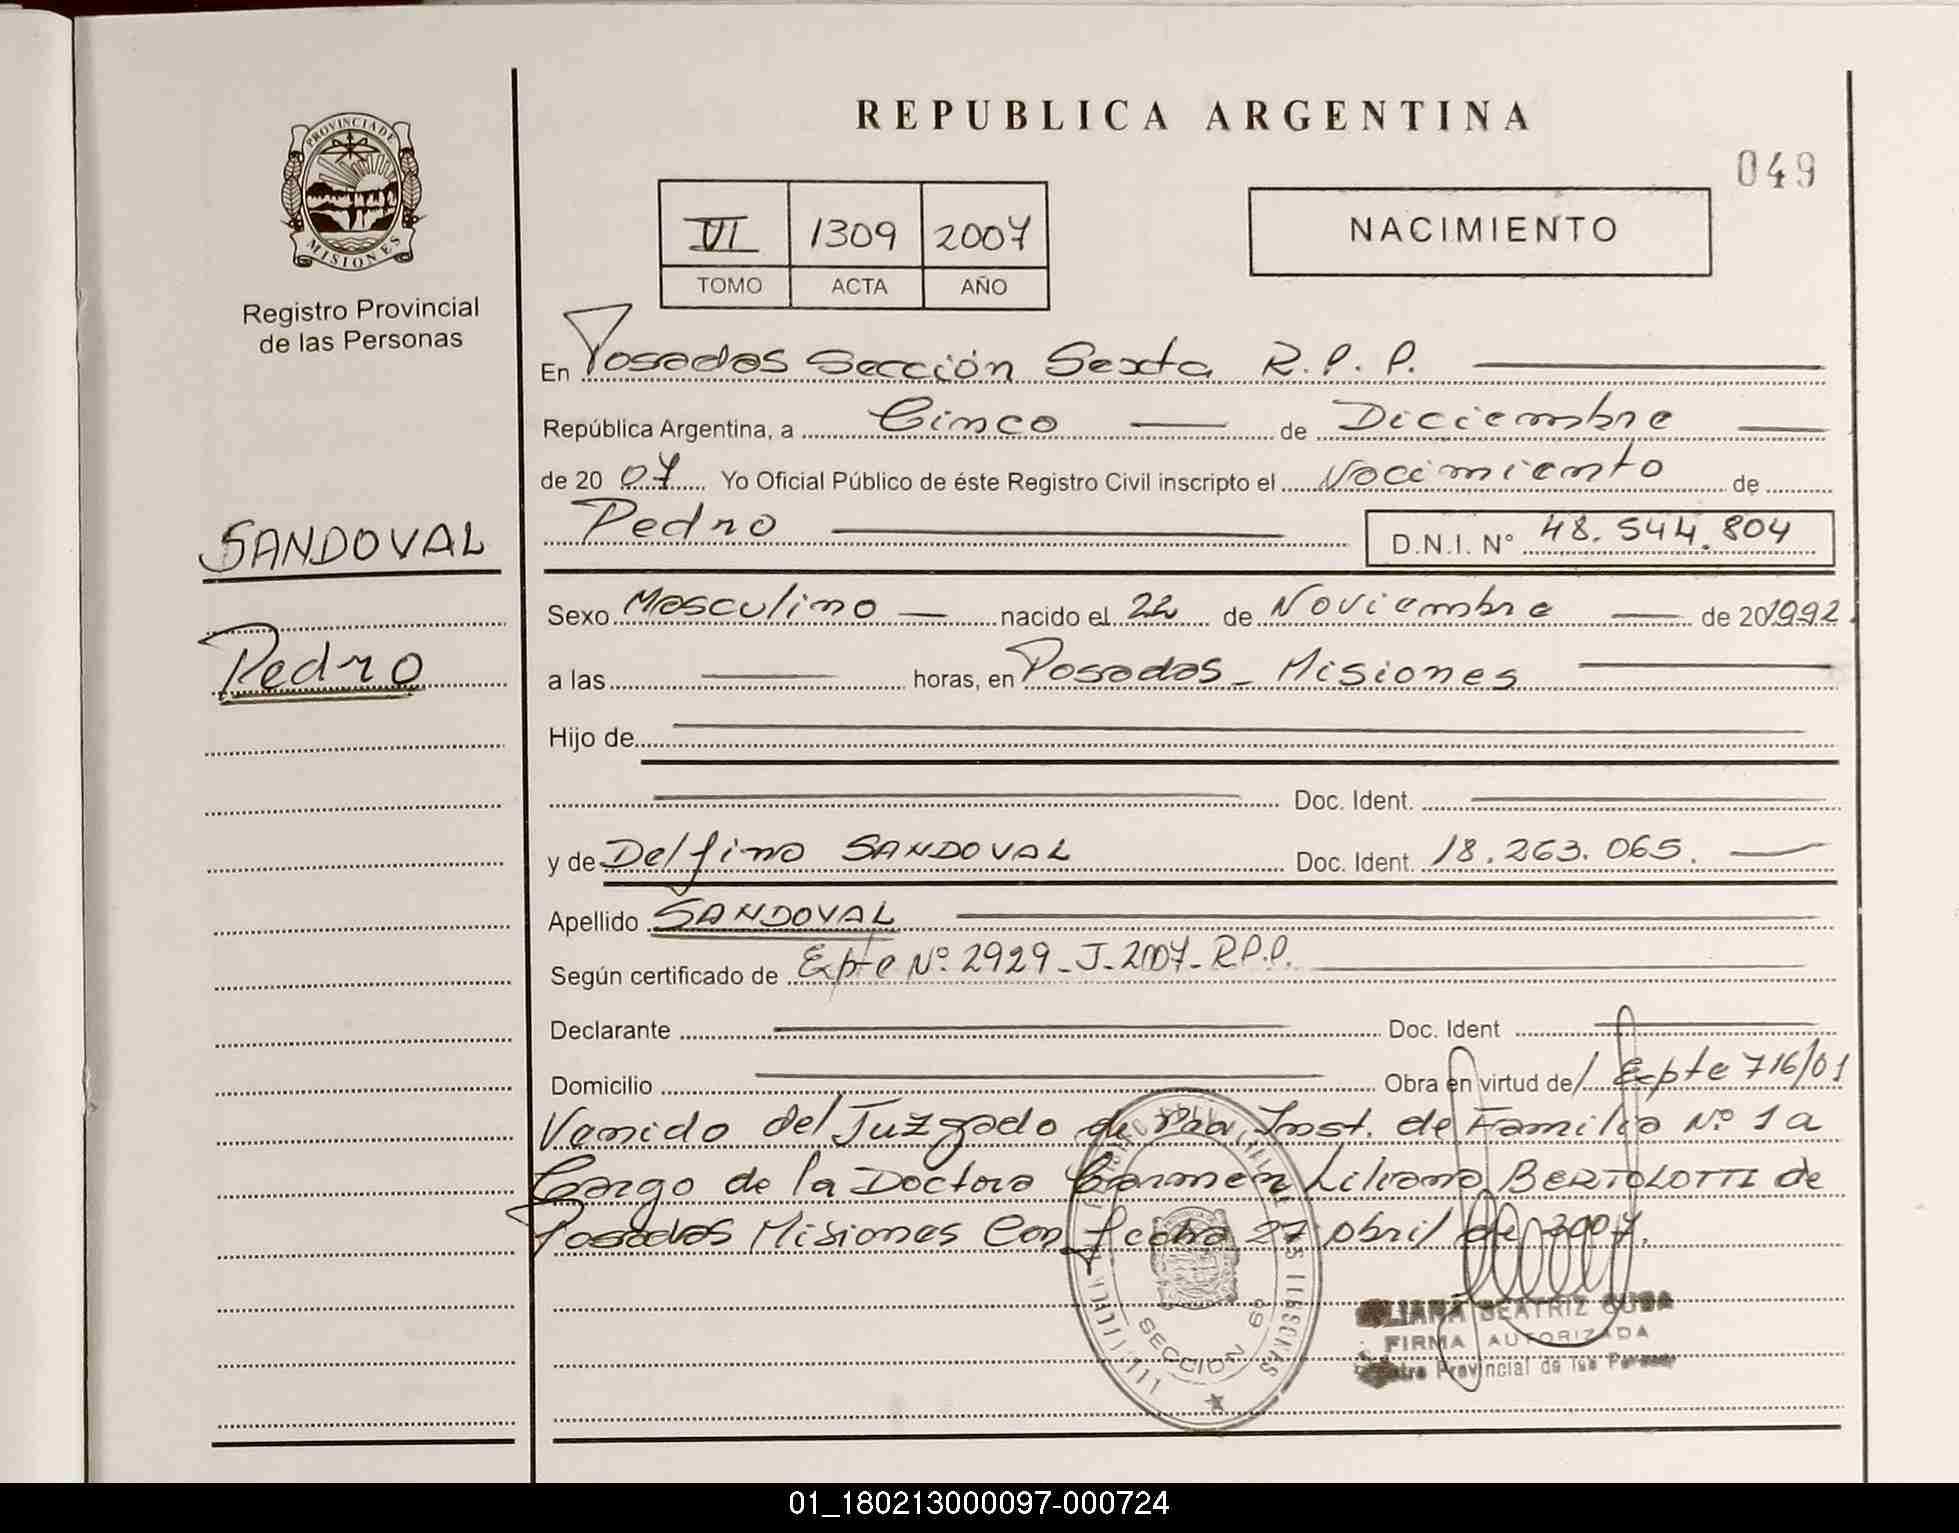 REPUBLICA ARGENTINA
049
PROVINCIA DE
MISIONES
Registro Provincial
de las Personas
VI 1309 2007
TOMO ACTA AÑO
NACIMIENTO
En Posadas Sección Sexta R.P.P.
República Argentina, a Cinco de Diciembre
de 20 07 Yo Oficial Público de éste Registro Civil inscripto el Nacimiento de
Pedro D.N.I. N° 48.544.804
SANDOVAL
Pedro
Sexo Masculino nacido el 22 de Noviembre de 201992
a las horas, en Posadas - Misiones
Hijo de
Doc. Ident.
y de Delfino SANDOVAL Doc. Ident. 18.263.065.
Apellido SANDOVAL
Según certificado de Expte Nº 2929-J-2007-R.P.P.
Declarante Doc. Ident
Domicilio Obra en virtud de/ Expte 716/01
Venido del Juzgado de Pra Inst. de Familia Nº 1 a
Cargo de la Doctora Carmen Liliana BERTOLOTTI de
Posadas Misiones Con fecha 27 abril de 2007.
SECCION 6º
BEATRIZ
FIRMA AUTORIZADA
Provincial de las
01_180213000097-000724